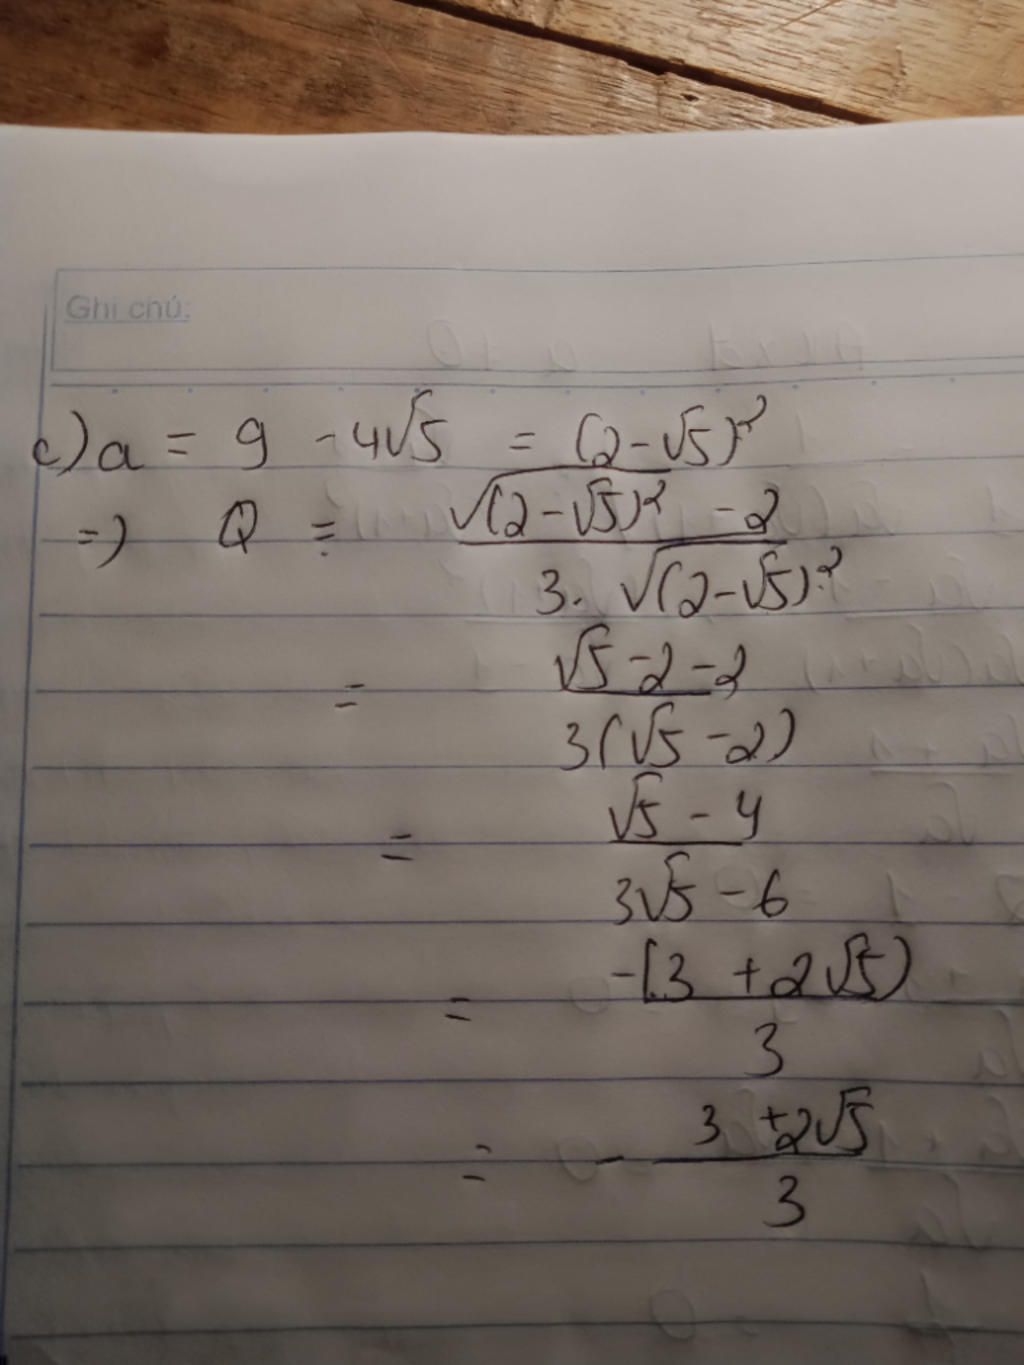 Ghi chú:
c) a = 9 - 4√5 = (2-√5)²
=) Q = √(2-√5)² - 2
3. √(2-√5)²
= √5 - 2 - 2
3(√5 - 2)
= √5 - 4
3√5 - 6
= -(3 + 2√5)
3
= - 3 + 2√5
3